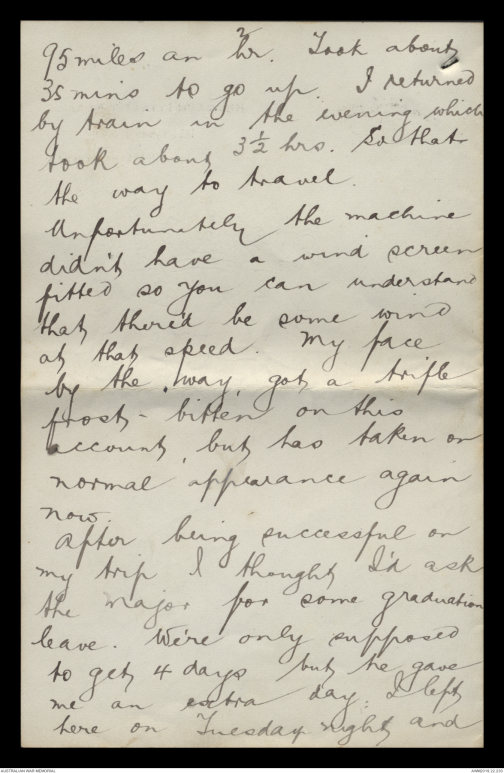 95 miles an hr. Took about
35 mins to go up. I returned
by train in the evening which
took about 3½ hrs. So that
the way to travel.
Unfortunately the machine
didn't have a wind screen
fitted so you can understand
that there'd be some wind
at that speed. My face
by the way, got a trifle
frost-bitten on this
account, but has taken on
normal appearance again
now.
After being successful on
my trip I thought I'd ask
the Major for some graduation
leave. We're only supposed
to get 4 days but he gave
me an extra day. I left
here on Tuesday night and
AUSTRALIAN WAR MEMORIAL